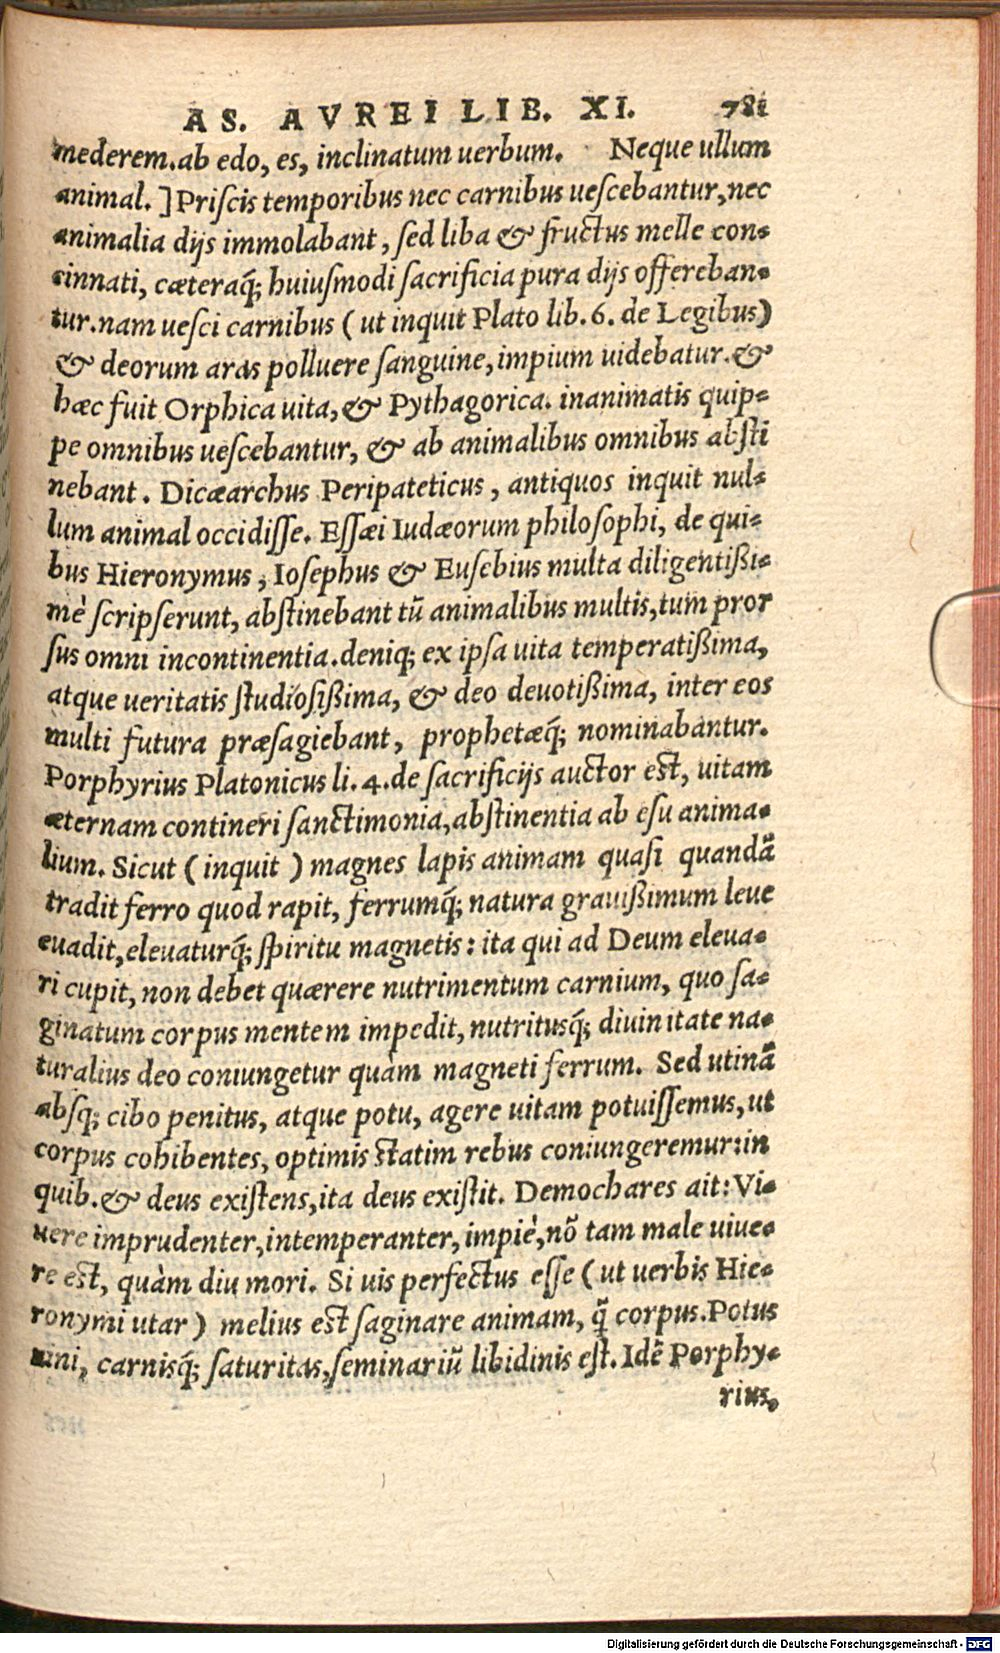 AS. AVREI LIB. XI. 781
mederem.ab edo, es, inclinatum uerbum. Neque ullum
animal. ] Priſcis temporibus nec carnibus ueſcebantur, nec
animalia dijs immolabant, ſed liba & fructus melle con-
cinnati, cæteraq́; huiuſmodi ſacrificia pura dijs offereban-
tur.nam ueſci carnibus ( ut inquit Plato lib. 6. de Legibus)
& deorum aras polluere ſanguine, impium uidebatur. &
hæc fuit Orphica uita, & Pythagorica. inanimatis quip-
pe omnibus ueſcebantur, & ab animalibus omnibus abſti
nebant. Dicæarchus Peripateticus, antiquos inquit nul-
lum animal occidiſſe. Eſſæi Iudæorum philoſophi, de qui-
bus Hieronymus, Ioſephus & Euſebius multa diligentißi-
mè ſcripſerunt, abſtinebant tũ animalibus multis, tum pror
ſus omni incontinentia.deniq; ex ipſa uita temperatißima,
atque ueritatis ſtudioſißima, & deo deuotißima, inter eos
multi futura præſagiebant, prophetæq́; nominabantur.
Porphyrius Platonicus li. 4. de ſacrificijs auctor est, uitam
æternam contineri ſanctimonia, abſtinentia ab eſu anima-
lium. Sicut ( inquit ) magnes lapis animam quaſi quandã
tradit ferro quod rapit, ferrumq́; natura grauißimum leue
euadit, eleuaturq́; ſpiritu magnetis: ita qui ad Deum eleua-
ri cupit, non debet quærere nutrimentum carnium, quo ſa-
ginatum corpus mentem impedit, nutritusq́; diuinitate na-
turalius deo coniungetur quàm magneti ferrum. Sed utinã
abſq; cibo penitus, atque potu, agere uitam potuiſſemus, ut
corpus cohibentes, optimis statim rebus coniungeremur:in
quib. & deus exiſtens, ita deus exiſtit. Demochares ait: Vi-
uere imprudenter, intemperanter, impiè, nõ tam male uiue-
re est, quàm diu mori. Si uis perfectus eſſe ( ut uerbis Hie-
ronymi utar ) melius est ſaginare animam, q̃ corpus. Potus
uini, carnisq́; ſaturitas, ſeminariũ libidinis eſt. Idẽ Porphy-
rius,
Digitalisierung gefördert durch die Deutsche Forschungsgemeinschaft - DFG